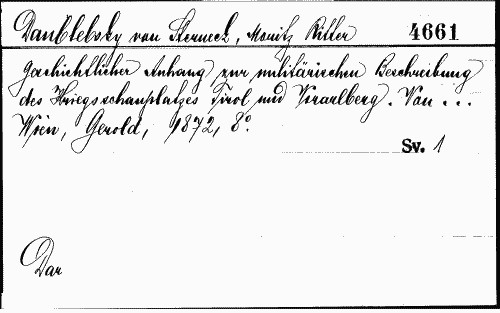 Daublebsky von Sterneck, Moritz Ritter 4661
Geschichtlicher Anhang zur militärischen Beschreibung
des Kriegsschauplatzes Tirol und Vorarlberg. Von ...
Wien, Gerold, 1872, 8°.
Sv. 1
Dar